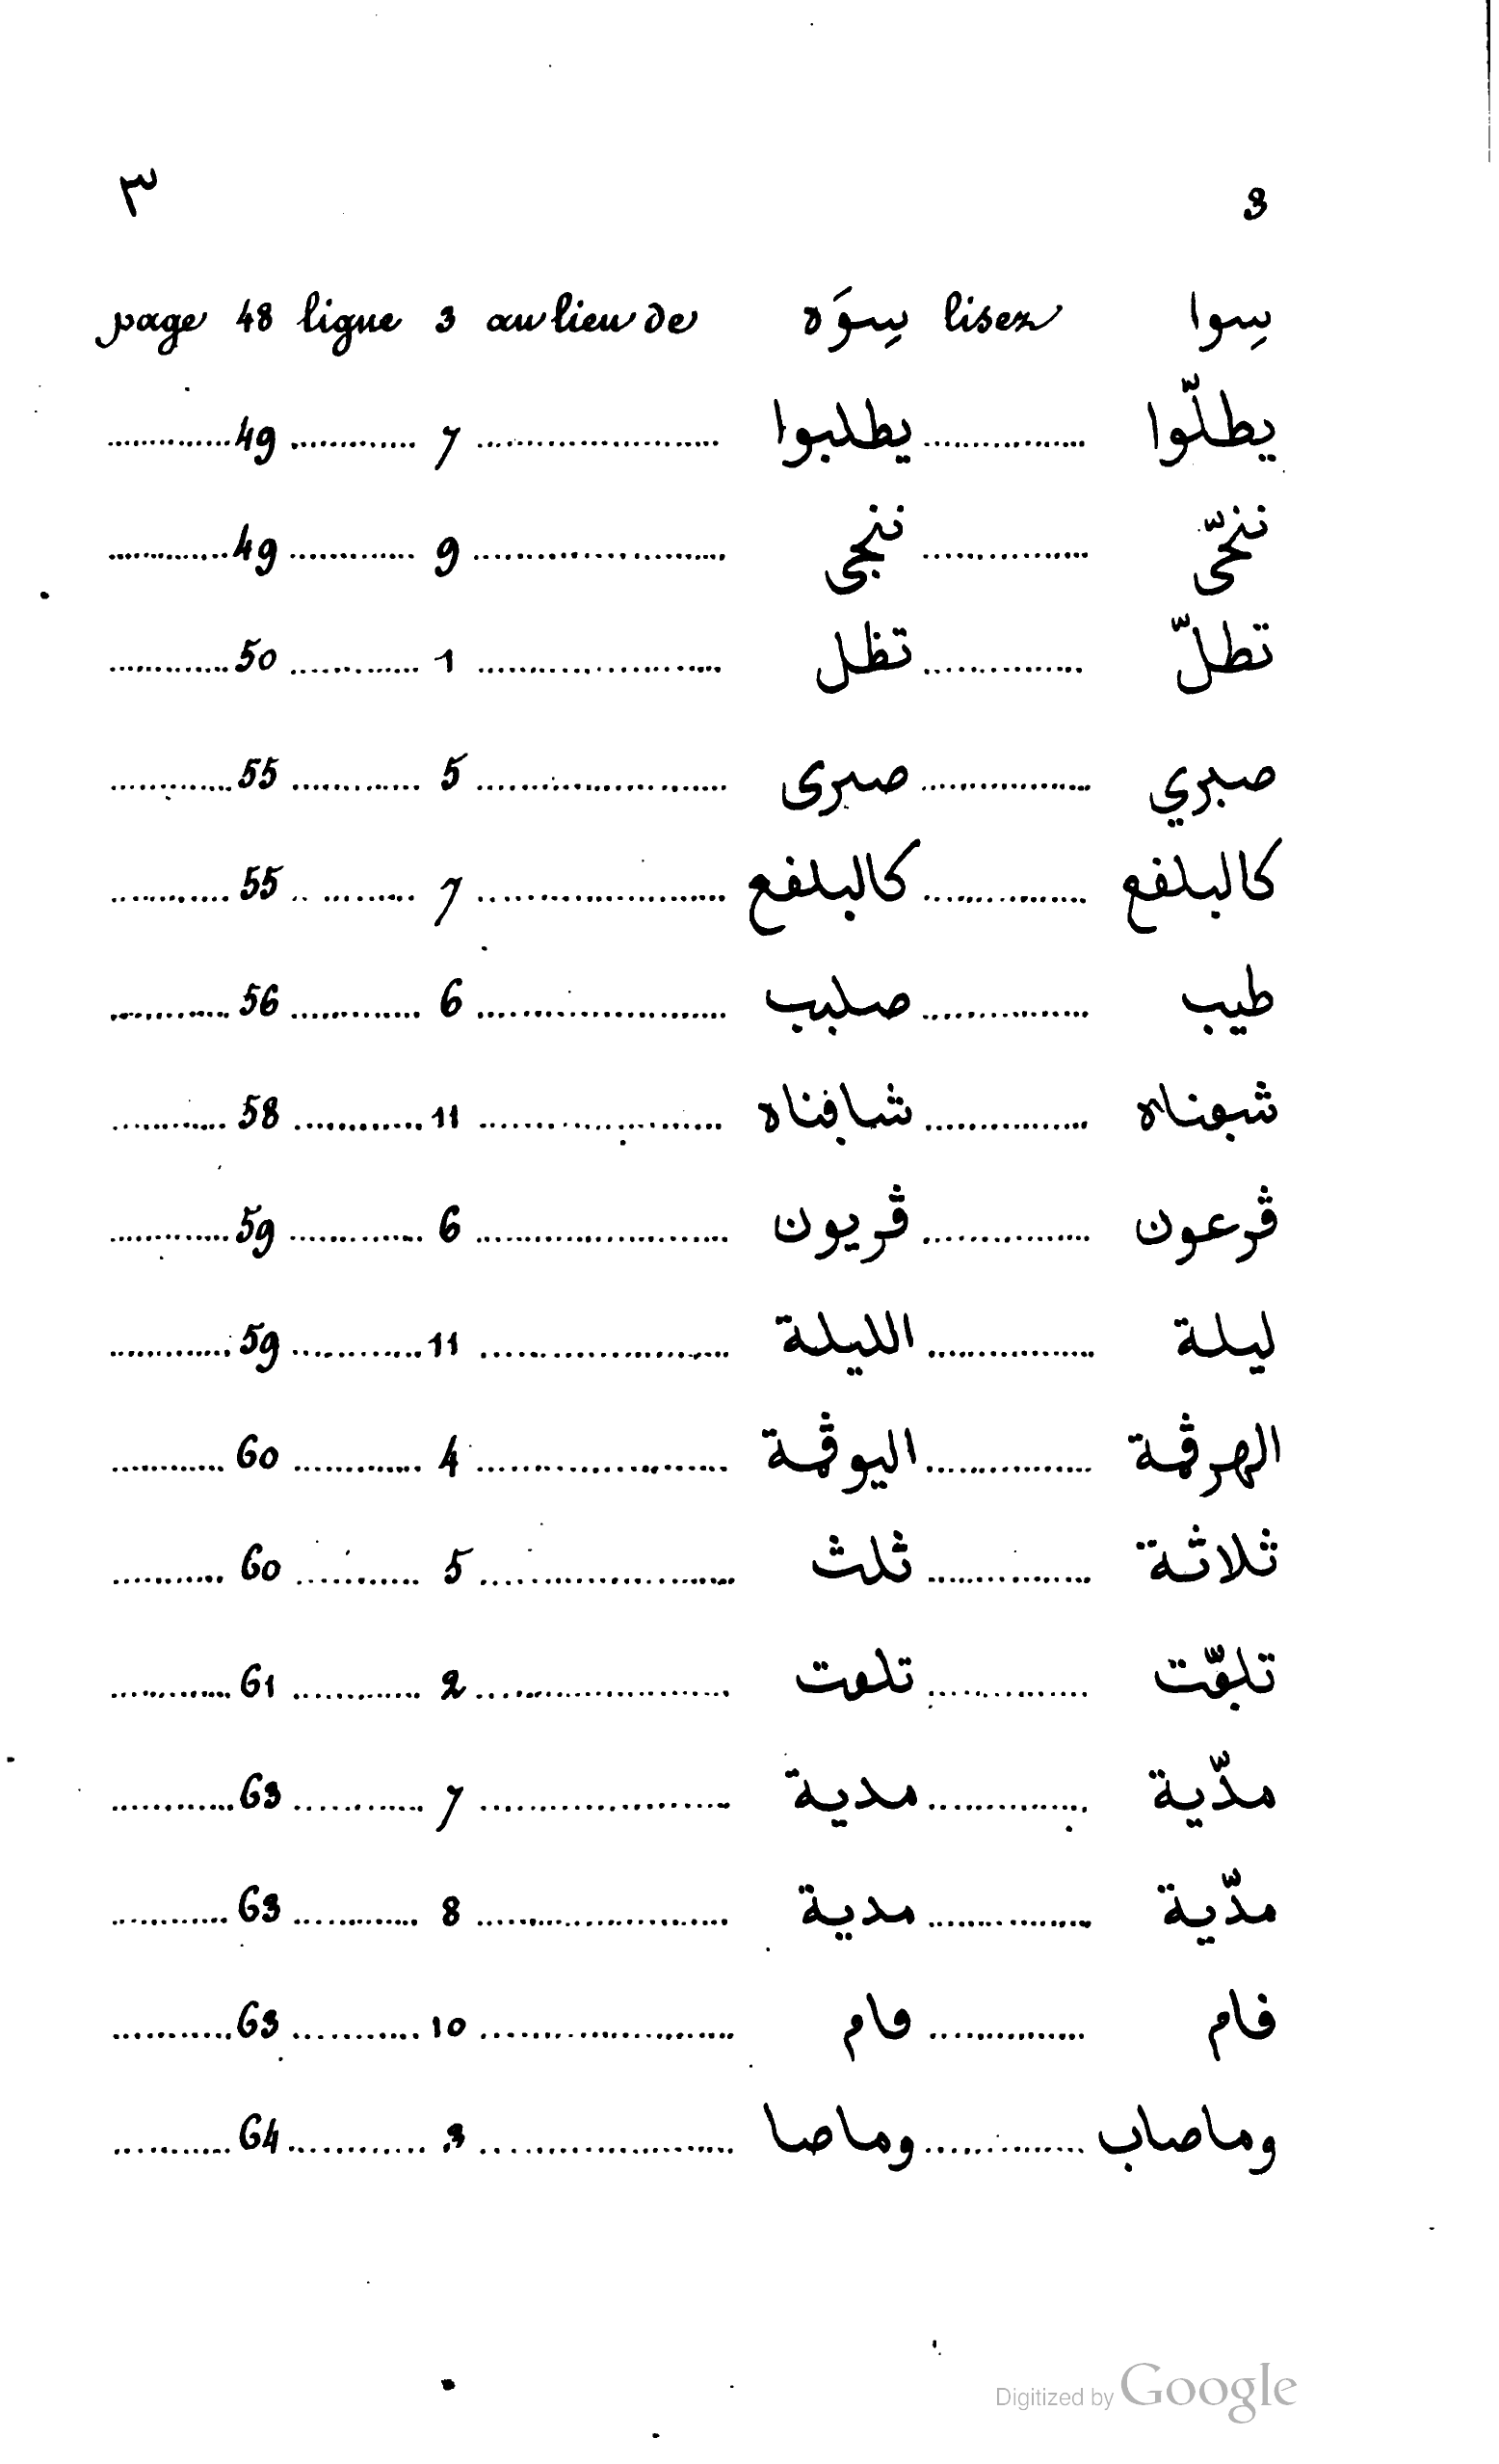 ٣ 3
page 48 ligne 3 au lieu de سِوَه lisez سِوا
............49............7............يطلبوا............يطلّوا
............49............9............ننجى............ننحّى
............50............1............تظل............تطلّ
............55............5............صبرى............صبري
............55............7............كالبلفع............كالبلفع
............56............6............صلبب............طيب
............58............11............شافناه............شبعناه
............59............6............ڤريون............ڤرعون
............59............11............الليلة............ليلة
............60............4............اليوڤمة............الهرڤمة
............60............5............ثلث............ثلاثة
............61............2........................
............63............7............مدية............مدّية
............63............8............مدية............مدّية
............63............10............ڡام............فام
............64............3............وماصا............وماصاب
Digitized by Google